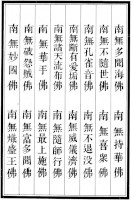 南無多聞海佛
南無持華佛
南無不隨世佛
南無喜眾佛
南無孔雀音佛
南無不退没佛
南無斷有愛垢佛
南無威儀濟佛
南無諸天流布佛
南無隨師行佛
南無華手佛
南無最上施佛
南無破怨賊佛
南無富多聞佛
南無妙國佛
南無熾盛王佛